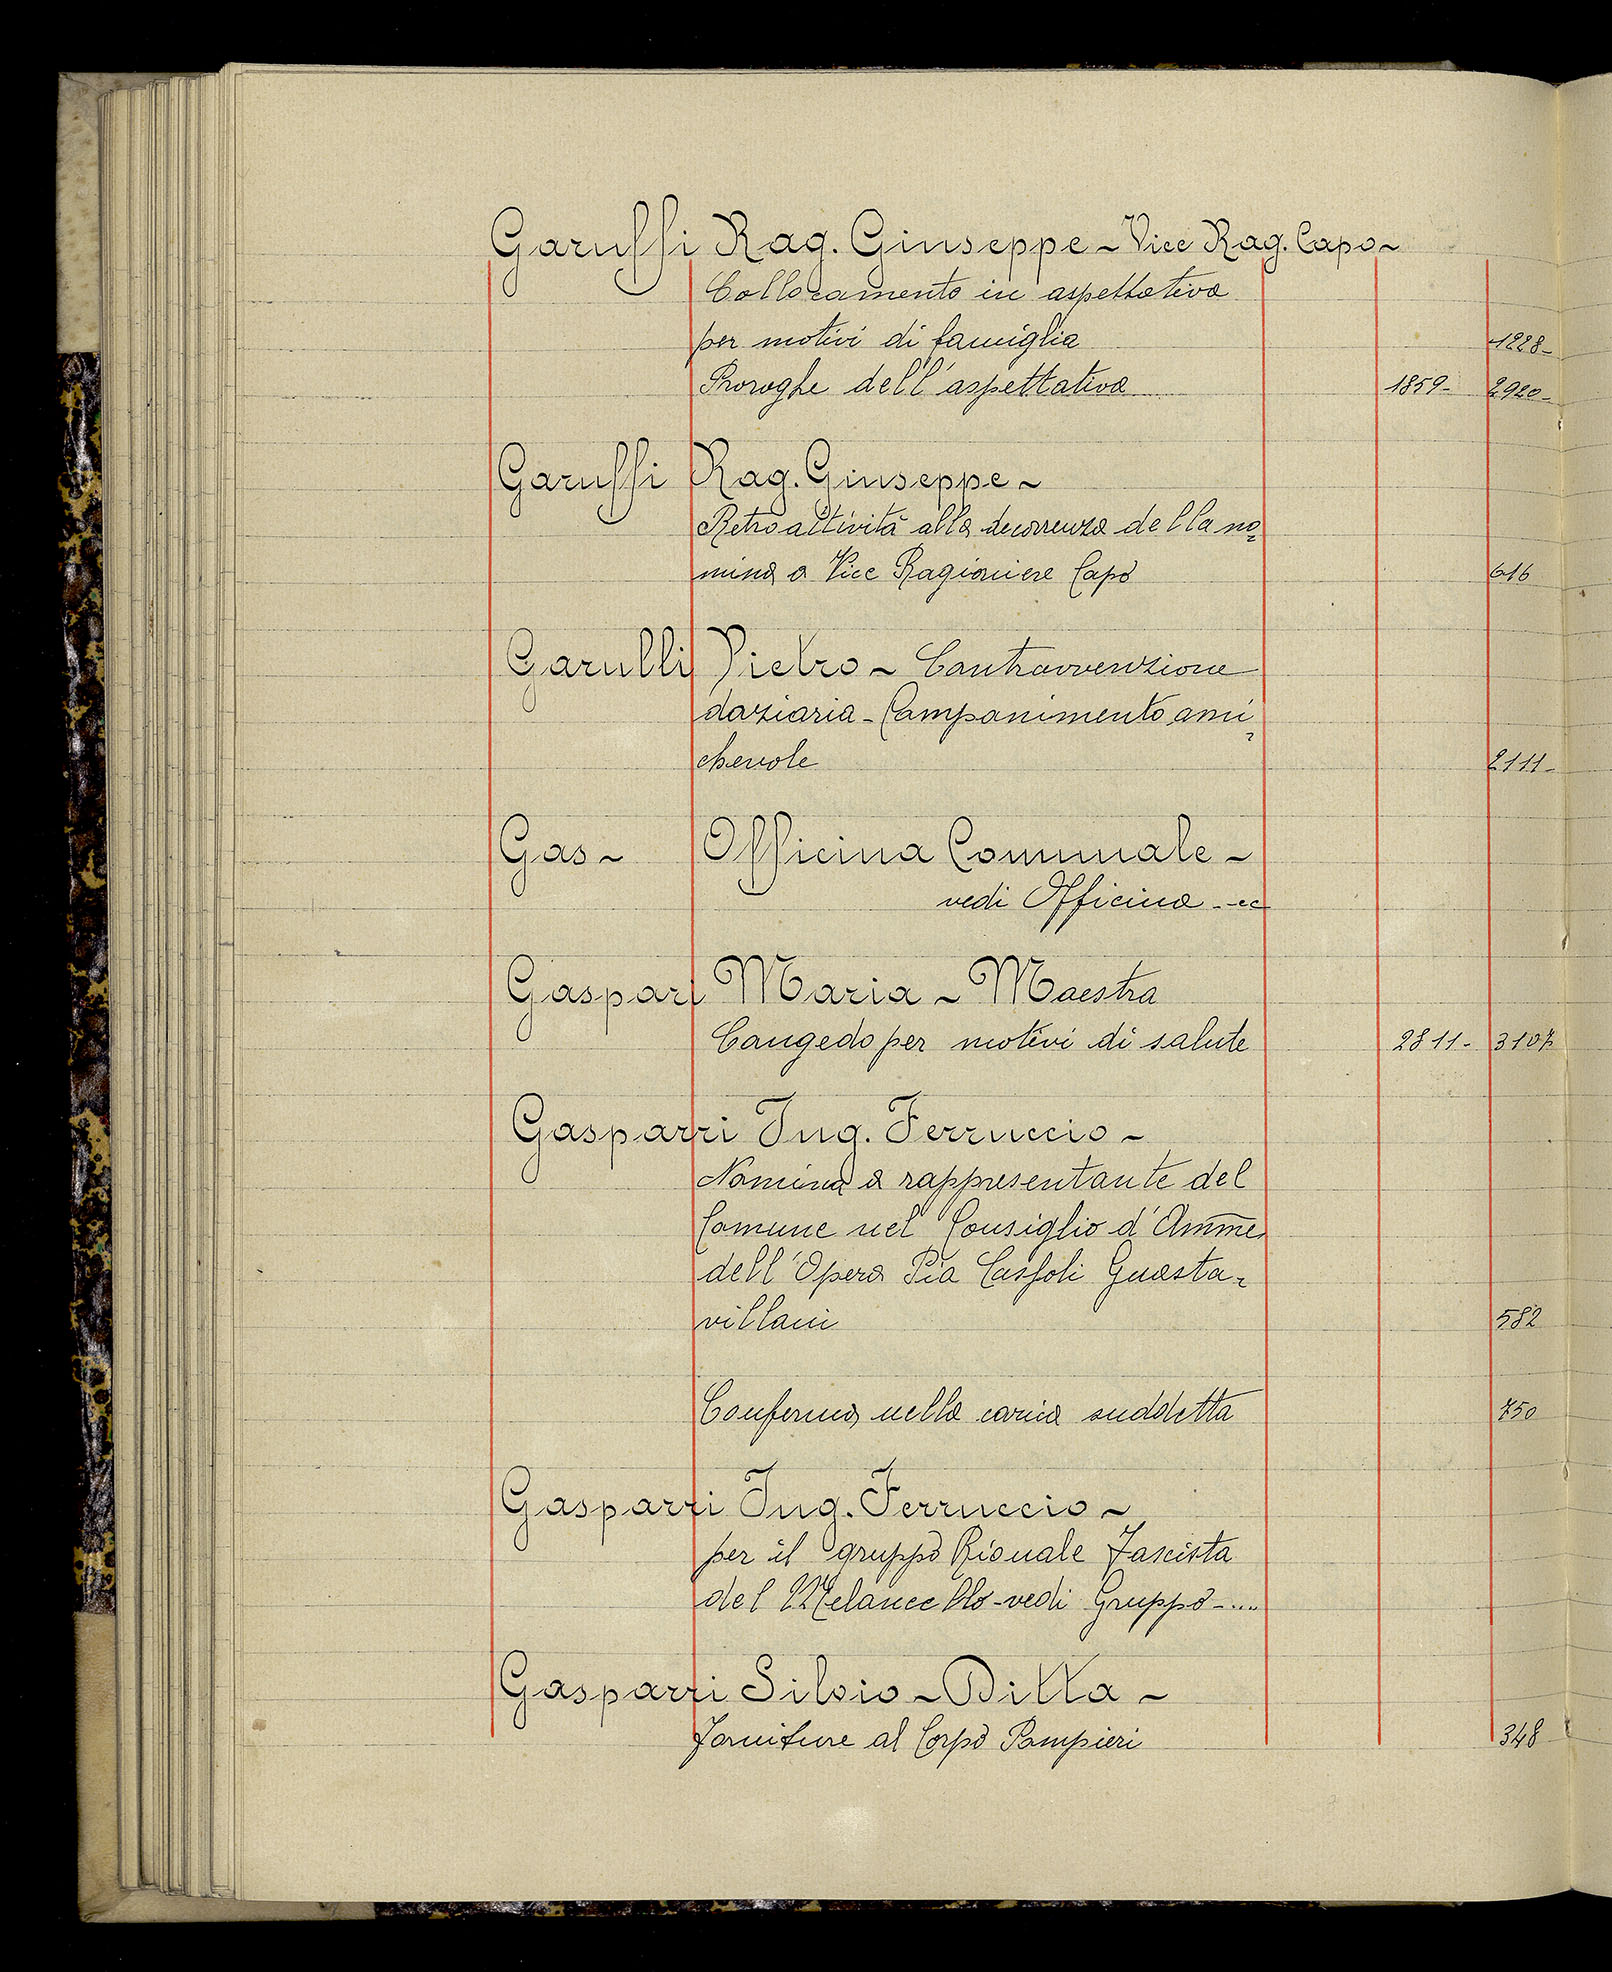 Garuffi Rag. Giuseppe ~ Vice Rag. Capo ~
Collocamento in aspettativa
per motivi di famiglia 1228-
Proroghe dell'aspettativa 1859- 2920-
Garuffi Rag. Giuseppe ~
Retroattività alla decorrenza della no=
mina a Vice Ragioniere Capo 616
Garulli Pietro ~ Contravvenzione
daziaria - Componimento ami=
chevole 2111-
Gas ~ Officina Comunale ~
vedi Officina - ec
Gaspari Maria ~ Maestra
Congedo per motivi di salute 2811- 3107
Gasparri Ing. Ferruccio ~
Nomina a rappresentante del
Comune nel Consiglio d'Amm̅e
dell'Opera Pia Casfoli Guasta=
villani 582
Conferma nella carica suddetta 750
Gasparri Ing. Ferruccio ~
per il gruppo Rionale Fascista
del Meloncello - vedi Gruppo - ....
Gasparri Silvio ~ Ditta ~
Forniture al Corpo Pompieri 348